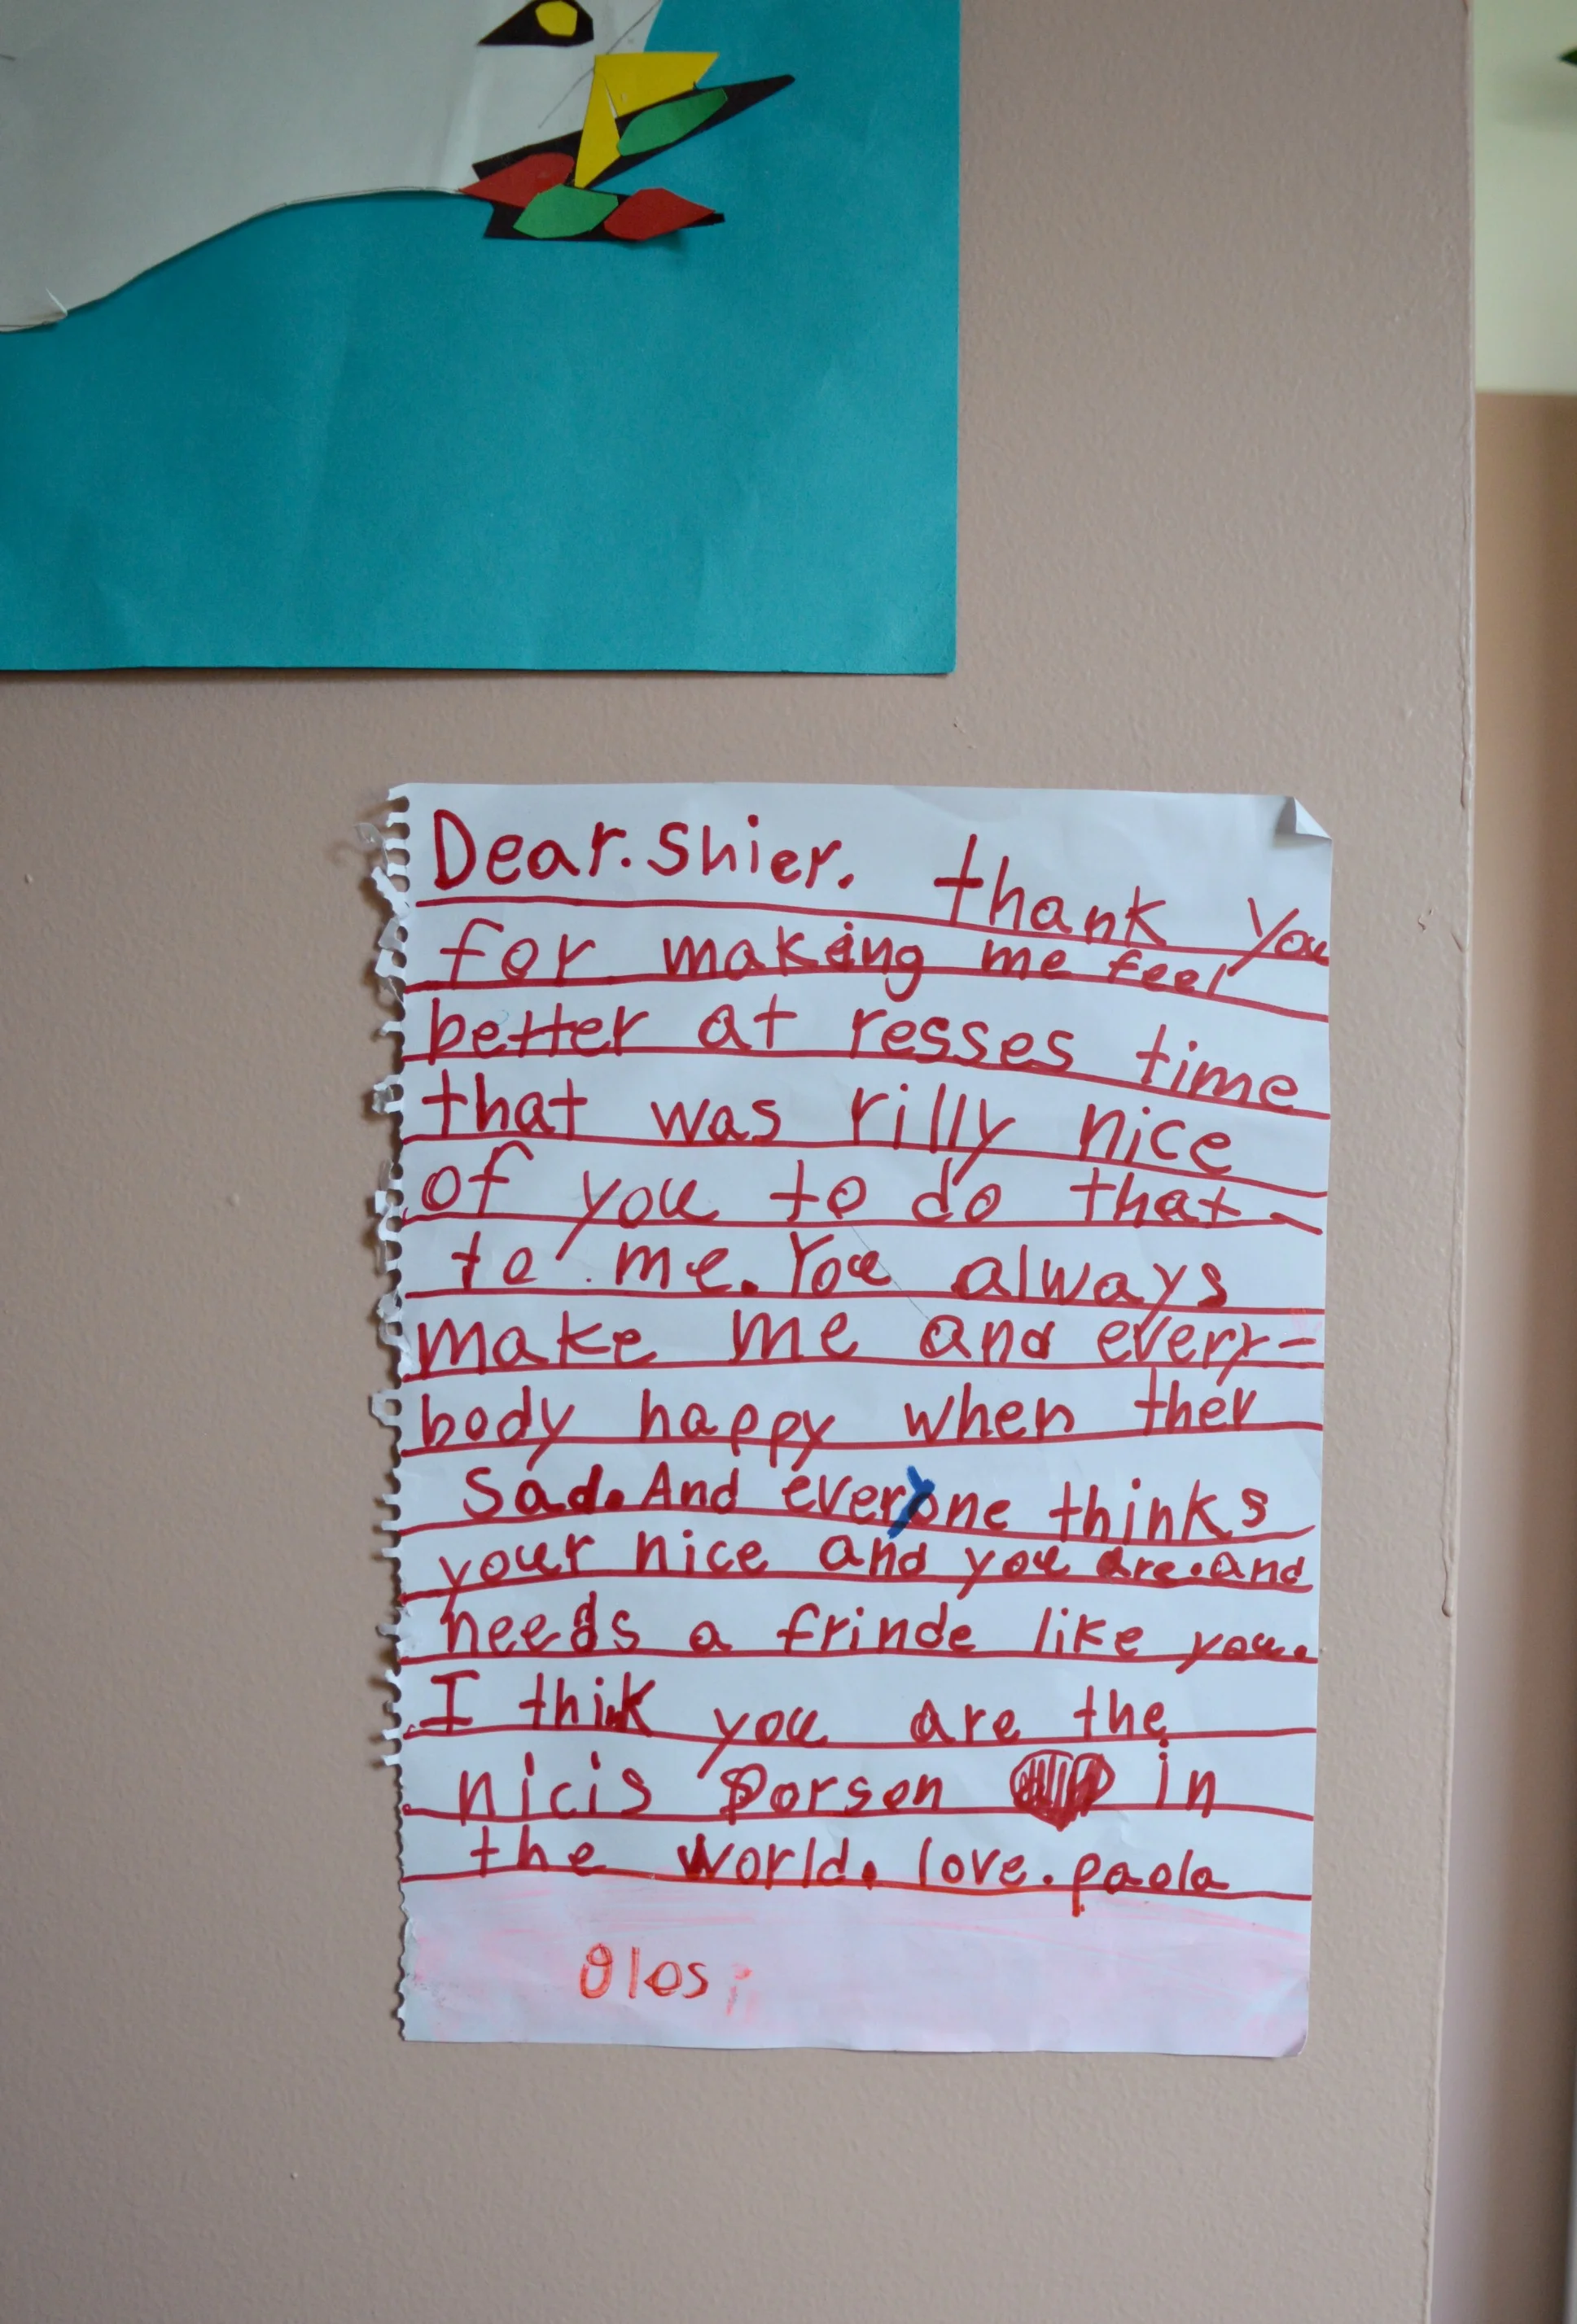 Dear. Shier. thank you
for making me feel
better at resses time
that was rilly nice
of you to do that
to me. You always
make me and every-
body happy when ther
sad. And everyone thinks
your nice and you are. and
needs a frinde like you.
I thik you are the
nicis porson in
the world. love. paola